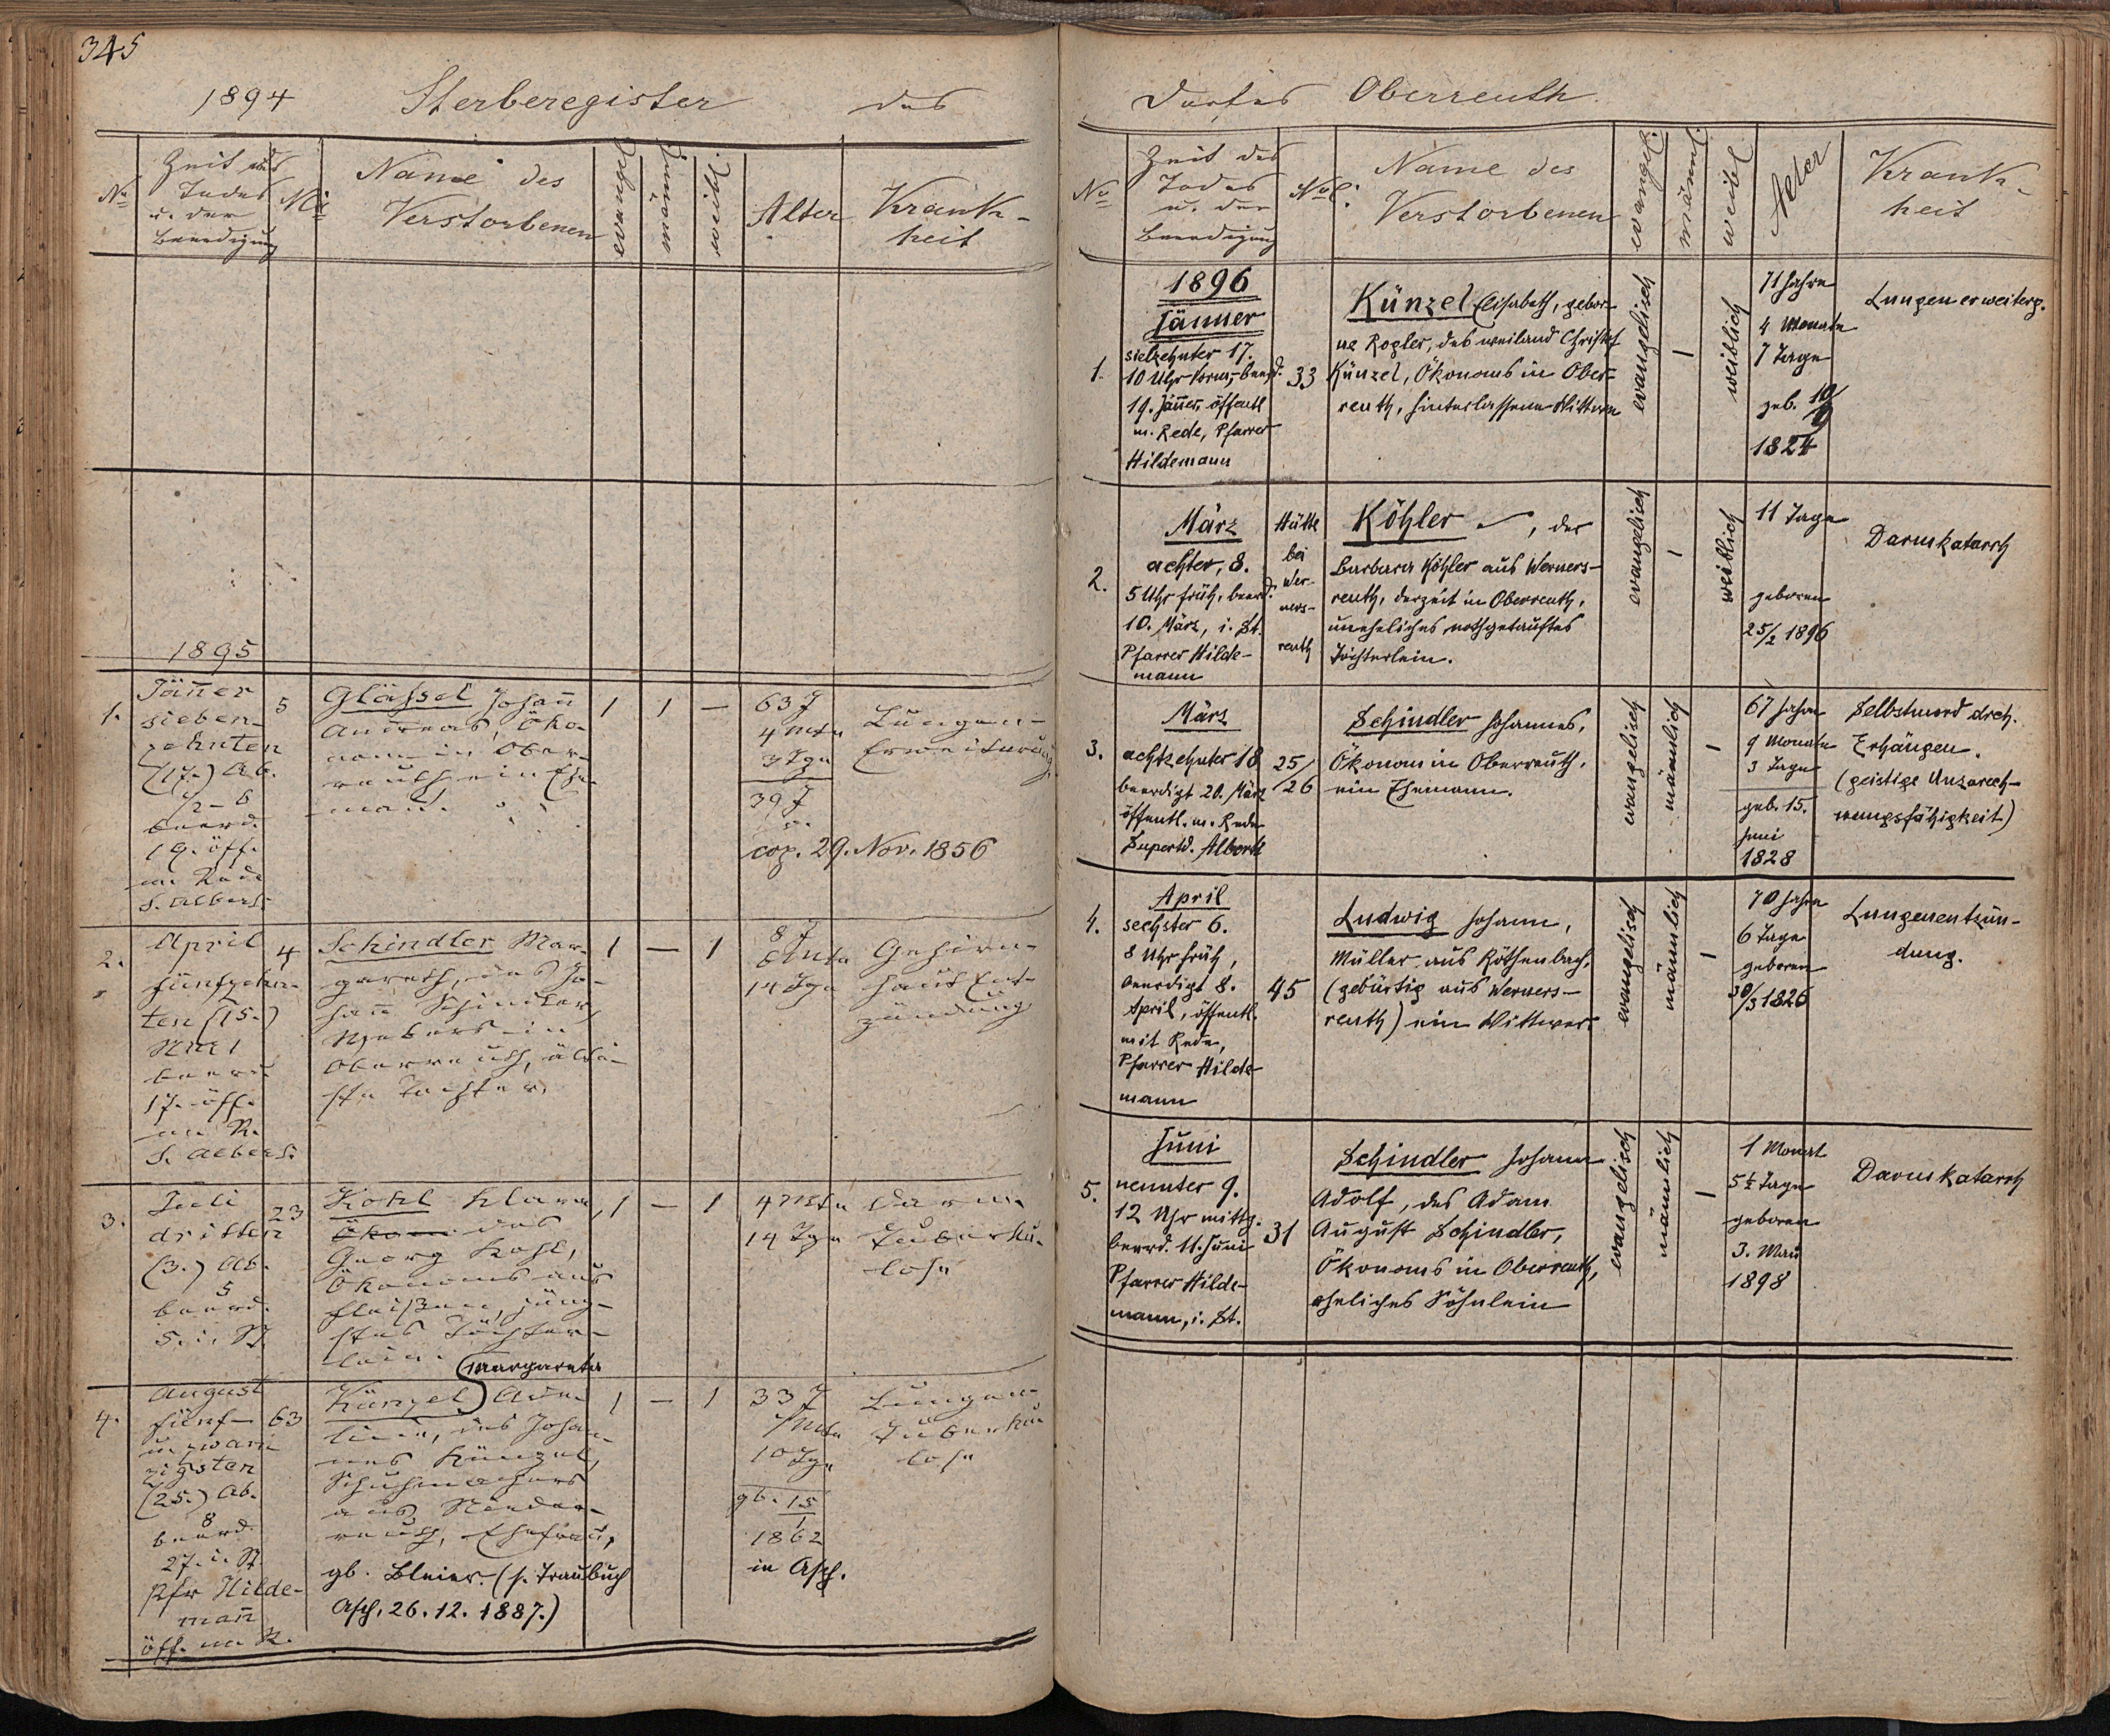 345
1894 Sterberegister des
No
Zeit des
Todes
u. der
Beerdigung
No
Name des
Verstorbenen
evangel.
männl.
weibl.
Alter
Krank-
heit
1895
1.
Jän̄er
sieben-
zehnten
(17.) Ab.
1/2 6
beerd.
19. öff.
m. Rede
S. Albert.
5
Glässel Johan̄
Andreas, Öko-
nom in Ober-
reuth ein Ehe-
man̄.
1
1
—
63 J
4 Mte
3 Tge
39 J
cop. 29. Nov. 1856
Lungen-
Erweiterung
2.
April
fünfzehn-
ten (15.)
beerd
17. öff.
m. R.
S. Albert.
4
Schindler Mar-
gareth, des Jo-
han̄ Schindler,
Webers in
Oberreuth, älte-
ste Tochter.
1
—
1
8 J
6 Mte
14 Tge
Gehirn-
haut Ent-
zündung
3.
Juli
dritten
(3.) Ab.
5
beerd.
5. i. St.
23
Kohl Klara,
Ökon des
Georg Kohl,
Ökonoms aus
Fleißen, jüng-
stes Töchter-
lein.
1
—
1
4 Mte
14 Tge
Darm-
Tuberku-
lose
4.
August
fünf-
u. zwan
zigsten
(25.) Ab.
8
beerd.
27. i. St.
Pfr Hilde-
man̄
öff. m. R.
63
Margareta
Künzel
des Johan-
nes Künzel,
Schuhmachers
aus Nieder-
reuth, Ehefrau,
gb. Bleier. (s. Traubuch
Asch, 26. 12. 1887.)
1
—
1
33 J
7 Mte
10 Tge
gb. 15
1
1862
in Asch.
Lungen-
Tuberku
lose
Dorfes Oberreuth
No
Zeit des
Todes
u. der
Beerdigung
No
Name des
Verstorbenen
evangel.
männl.
weibl
Alter
Krank-
heit
1896
Jänner
1.
siebzehnter 17.
10 Uhr Vorm, beerd.
19. Jän̄er, öffentl
m. Rede, Pfarrer
Hildemann
33
Künzel Elisabeth, gebor
ne Rogler, des weiland Christof
Künzel, Ökonoms in Ober-
reuth, hinterlassene Wittwe
evangelisch
—
weiblich
71 Jahre
4 Monate
7 Tage
geb. 10/9
1824
Lungenerweiterg.
März
2.
achter, 8.
5 Uhr früh, beerd.
10. März, i. St.
Pfarrer Hilde-
mann
Hütte
bei
Wer-
ners-
reuth
Köhler —, der
Barbara Köhler aus Werners-
reuth, derzeit in Oberreuth,
uneheliches nothgetauftes
Töchterlein.
evangelisch
—
weiblich
11 Tage
geboren
25/2 1896
Darmkatarrh
März
3.
achtzehnter 18
beerdigt 20. März
öffentl. m. Rede
Supertd. Alberti
25/26
Schindler Johannes,
Ökonom in Oberreuth,
ein Ehemann.
evangelisch
männlich
—
67 Jahre
9 Monate
3 Tage
geb. 15.
Juni
1828
Selbstmord drch.
Erhängen.
(geistige Unzurech-
nungsfähigkeit)
April
4.
sechster 6.
8 Uhr früh,
beerdigt 8.
April, öffentl.
mit Rede,
Pfarrer Hilde-
mann
45
Ludwig Johann,
Müller aus Röthenbach,
(gebürtig aus Werners-
reuth) ein Wittwer
evangelisch
männlich
—
70 Jahre
6 Tage
geboren
30/3 1826
Lungenentzün-
dung.
Juni
5.
neunter 9.
12 Uhr mittg.
beerd. 11. Juni
Pfarrer Hilde-
mann, i. St.
31
Schindler Johann
Adolf, des Adam
August Schindler,
Ökonoms in Oberreuth,
eheliches Söhnlein
evangelisch
männlich
—
1 Monat
5½ Tage
geboren
3. Mai
1898
Darmkatarrh